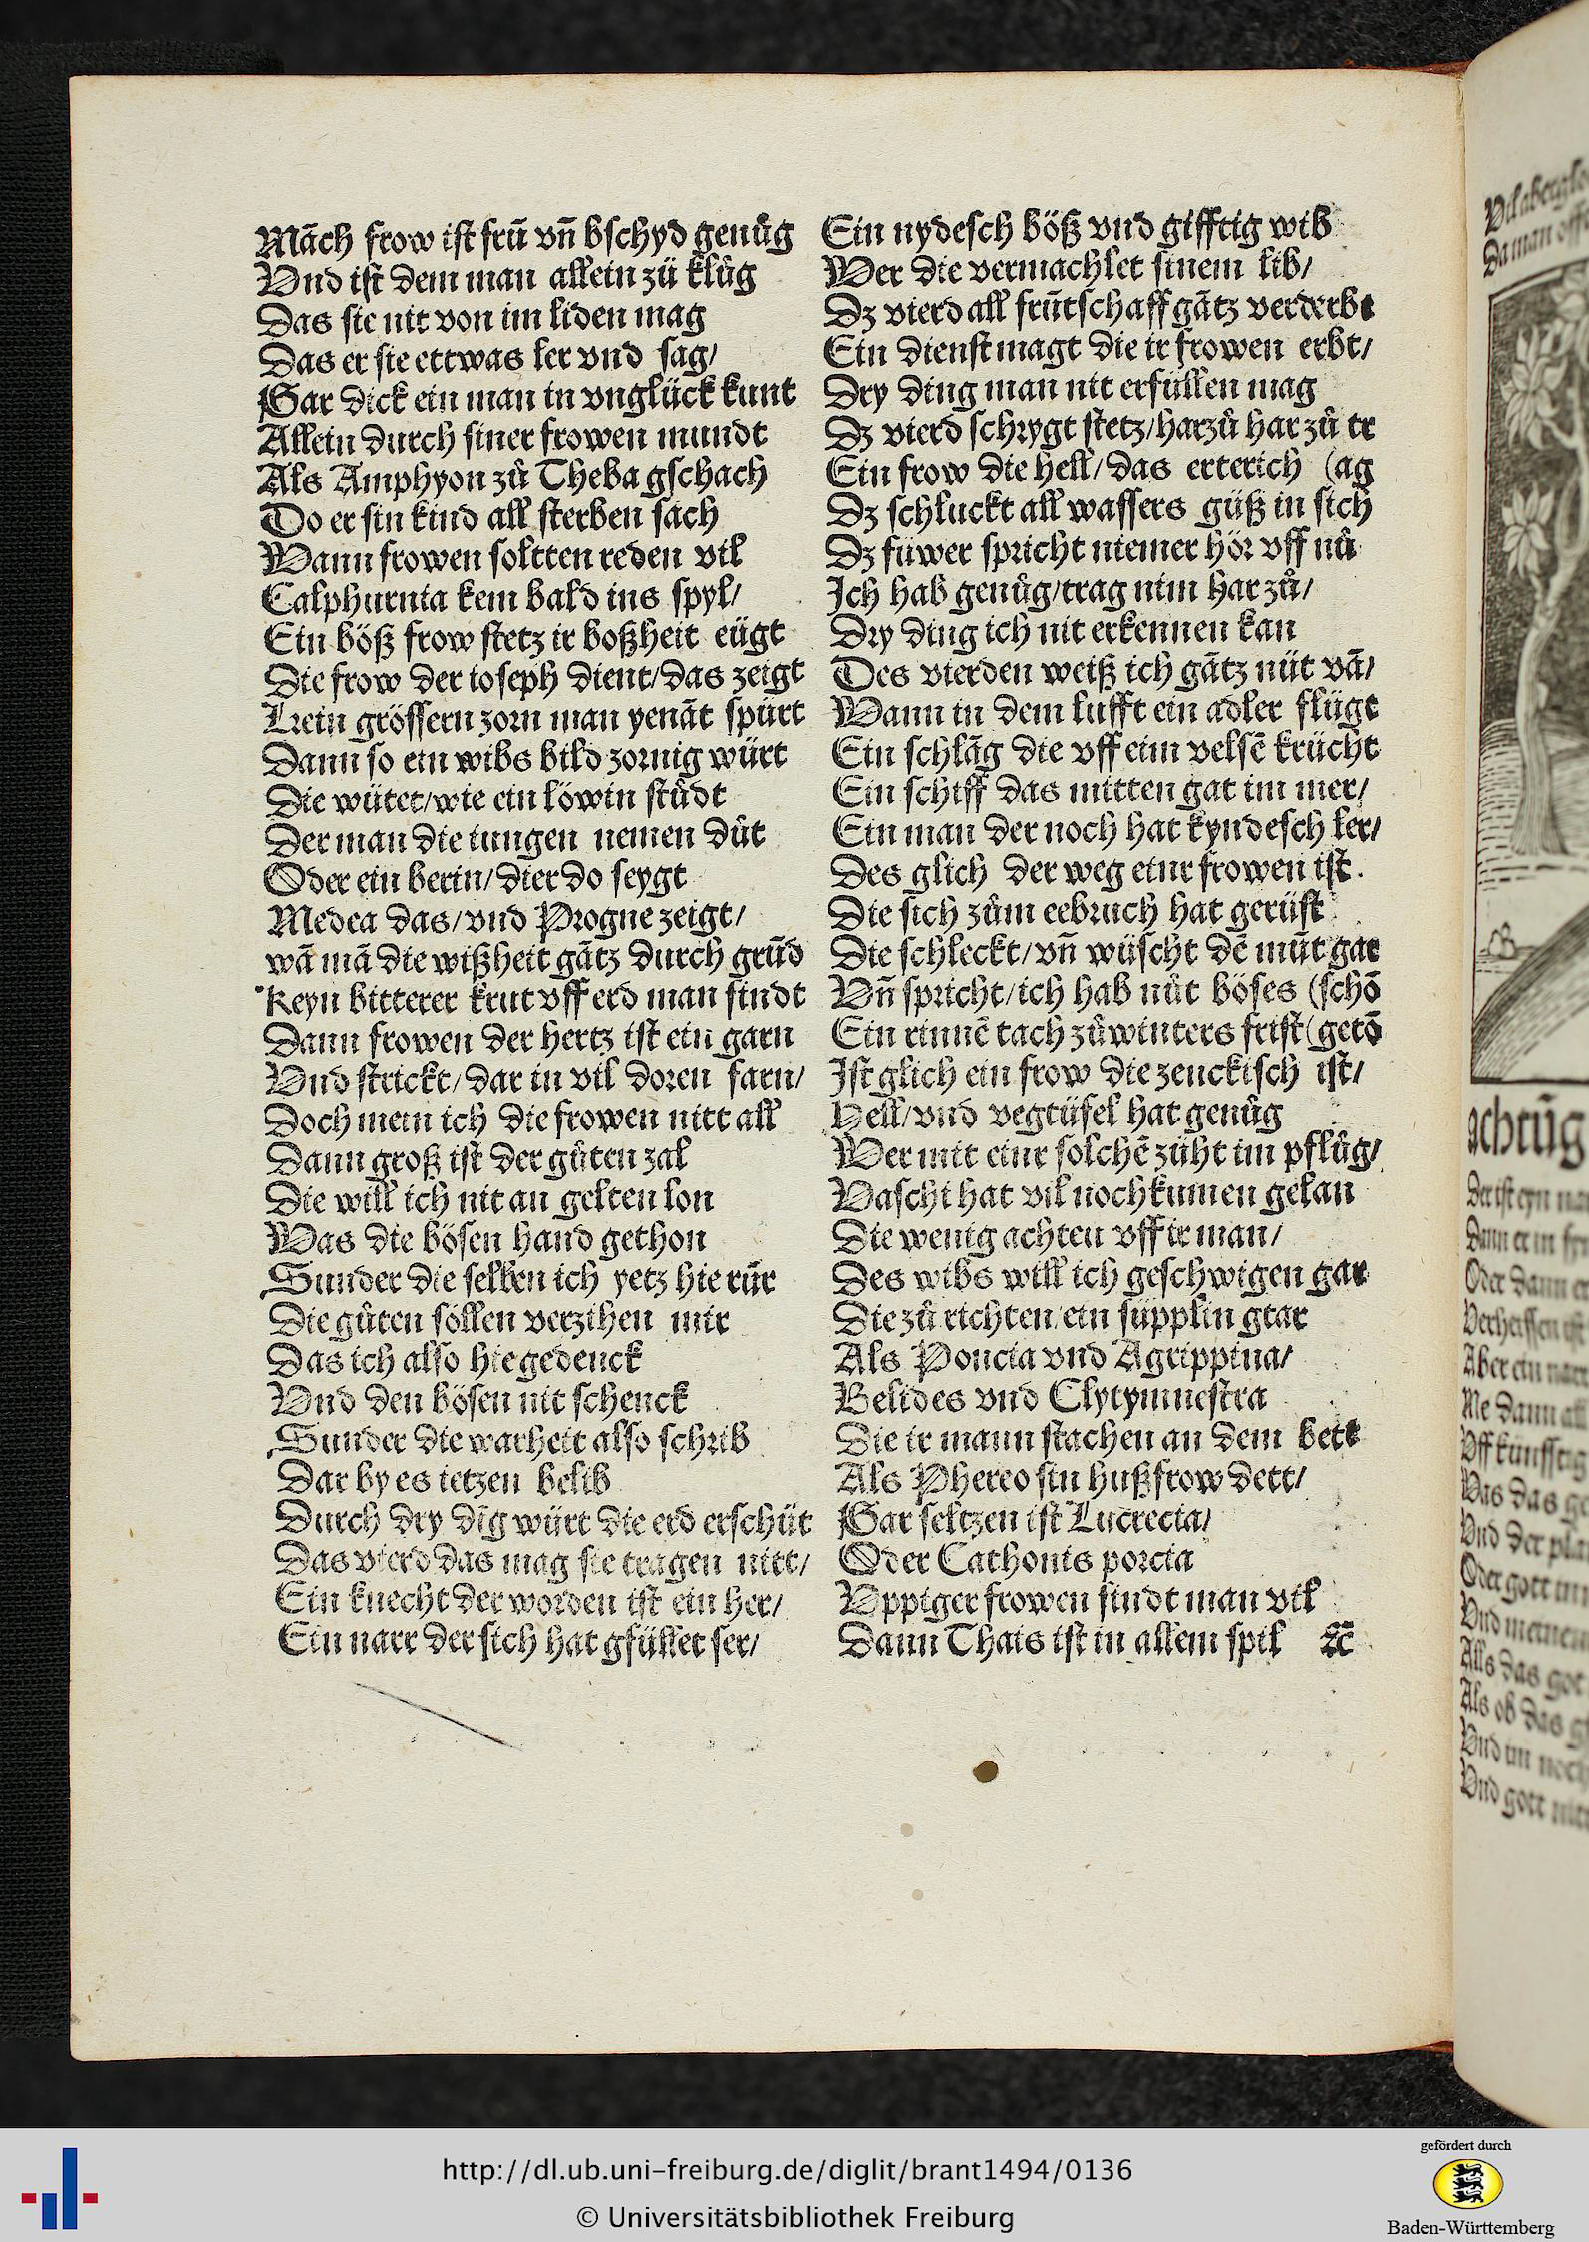 Mãch frow ist frũ vñ bschyd genůg
Vnd ist dem man allein zü klůg
Das sie nit von im liden mag
Das er sie ettwas ler vnd sag/
Gar dick ein man in vnglück kunt
Allein durch siner frowen mundt
Als Amphyon zů Theba gschach
Do er sin kind all sterben sach
Wann frowen soltten reden vil
Calphurnia kem bald ins spyl/
Ein böß frow stetz ir boßheit eügt
Die frow der ioseph dient/das zeigt
Krein grössern zorn man yenãt spürt
Dann so ein wibs bild zornig würt
Die wütet/wie ein löwin stůdt
Der man die iungen nemen důt
Oder ein berin/dier do seygt
Medea das/vnd Progne zeigt/
wã mã die wißheit gãtz durch grũd
Keyn bitterer krut vff erd man findt
Dann frowen der hertz ist ein garn
Vnd strickt/dar in vil doren farn/
Doch mein ich die frowen nitt all
Dann groß ist der gůten zal
Die will ich nit an gelten lon
Was die bösen hand gethon
Sunder die selben ich yetz hie rũr
Die gůten söllen verzihen mir
Das ich also hie gedenck
Vnd den bösen nit schenck
Sunder die warheit also schrib
Dar by es ietzen belib
Durch dry dĩg würt die erd erschüt
Das vierd das mag sie tragen nitt/
Ein knecht der worden ist ein her/
Ein narr der sich hat gfüllet ser/
Ein nydesch böß vnd gifftig wib
Wer die vermachlet sinem lib/
Dz vierd all frũtschaff gãtz verderbt
Ein dienstmagt die ir frowen erbt/
Dry ding man nit erfüllen mag
Dz vierd schrygt stetz/harzů har zů tr
Ein frow die hell/das erterich (ag
Dz schluckt all wassers güß in sich
Dz füwer spricht niemer hör vff nů
Ich hab genůg/trag nim har zů/
Dry ding ich nit erkennen kan
Des vierden weiß ich gãtz nüt vã/
Wann in dem lufft ein adler flügt
Ein schlãg die vff eim velsẽ krücht
Ein schiff das mitten gat im mer/
Ein man der noch hat kyndesch ler/
Des glich der weg einr frowen ist.
Die sich zům eebruch hat gerüst
Die schleckt/vñ wüscht dẽ mũt gar
Vñ spricht/ich hab nüt böses (schõ
Ein rinnẽ tach zů winters frist (getõ
Ist glich ein frow die zenckisch ist/
Hell/vnd vegtüfel hat genůg
Wer mit einr solchẽ züht im pflůg/
Vaschi hat vil nochkumen gelan
Die wenig achten vff ir man/
Des wibs will ich geschwigen gar
Die zů richten/ein süpplin gtar
Als Poncia vnd Agrippina/
Belides vnd Clytymnestra
Die ir mann stachen an dem bett
Als Phereo sin hußfrow dett/
Gar seltzen ist Lucrecia/
Oder Cathonis porcia
Vppiger frowen findt man vil
Dann Thais ist in allem spil ⁊c̃
achtũg
http://dl.ub.uni-freiburg.de/diglit/brant1494/0136
© Universitätsbibliothek Freiburg
gefördert durch
Baden-Württemberg